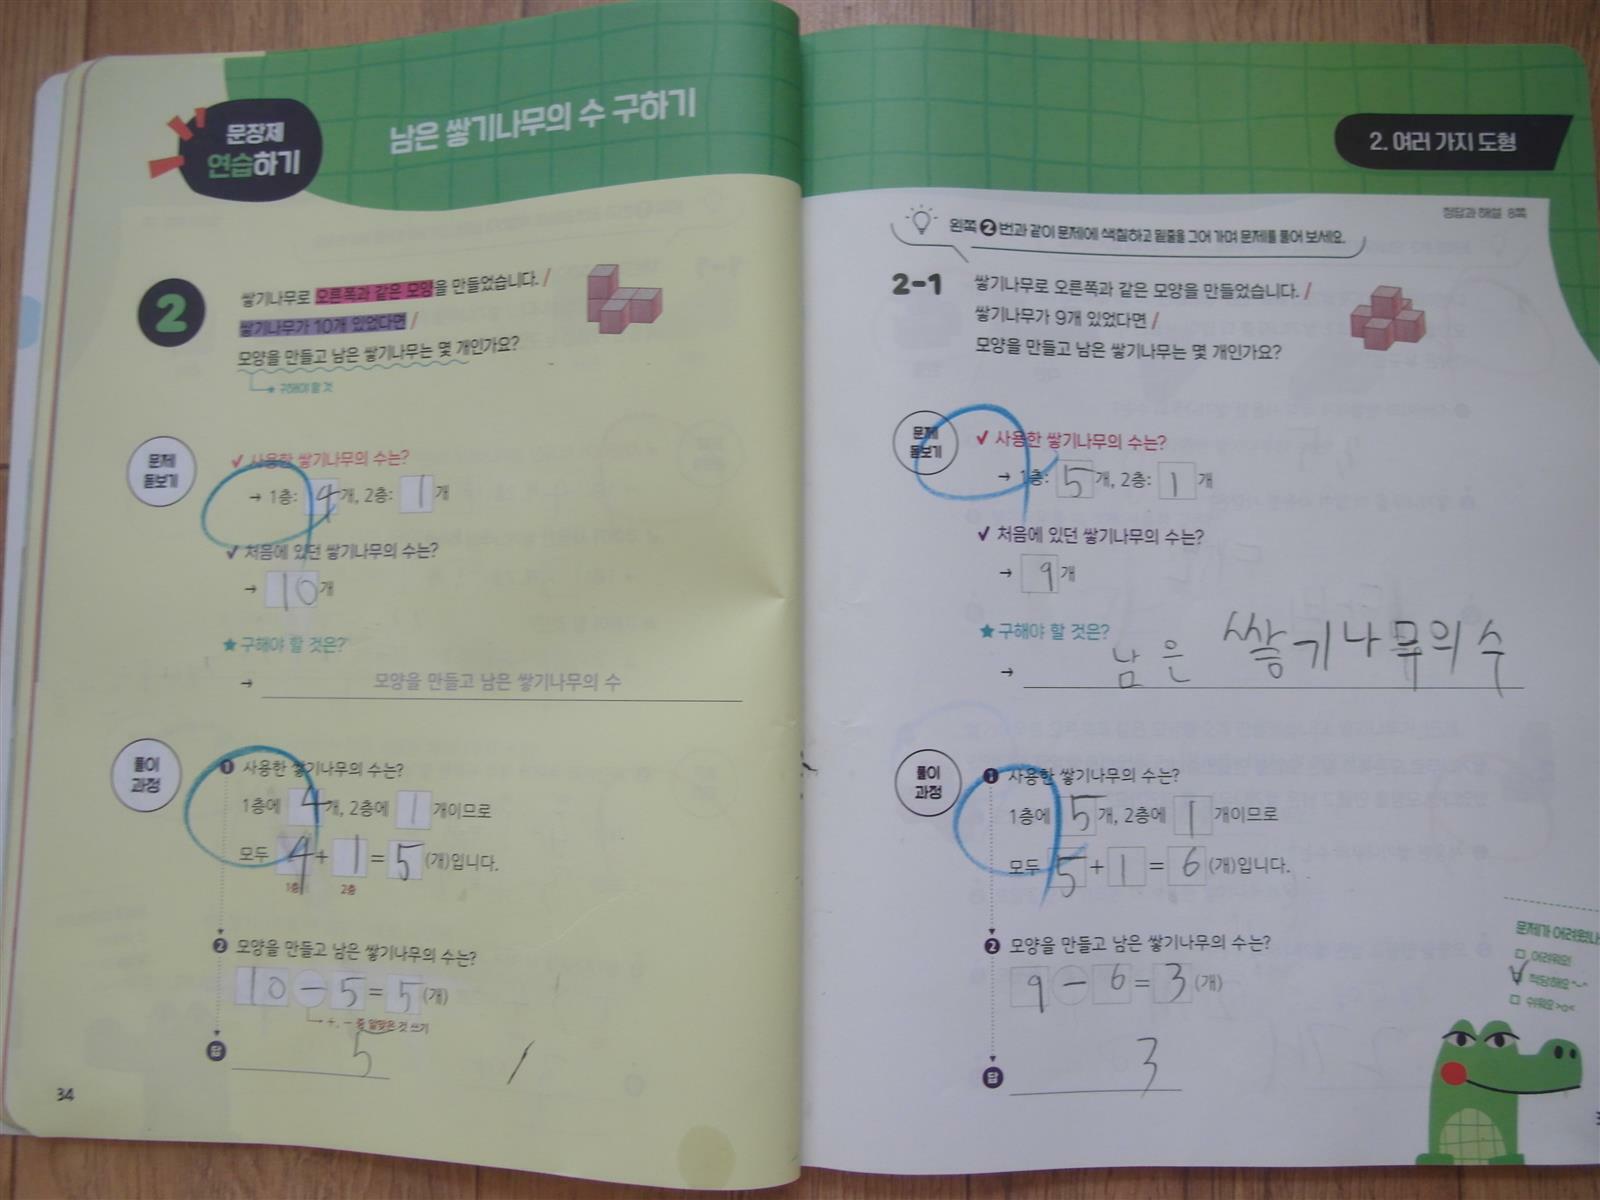 문장제
연습하기
남은 쌓기나무의 수 구하기
2
쌓기나무로 오른쪽과 같은 모양을 만들었습니다. /
쌓기나무가 10개 있었다면 /
모양을 만들고 남은 쌓기나무는 몇 개인가요?
★ 구해야 할 것
문제
돋보기
✓ 사용한 쌓기나무의 수는?
→ 1층: 4개, 2층: 1개
✓ 처음에 있던 쌓기나무의 수는?
→ 10개
★ 구해야 할 것은?
→ 모양을 만들고 남은 쌓기나무의 수
풀이
과정
❶ 사용한 쌓기나무의 수는?
1층에 4개, 2층에 1개이므로
모두 4+1=5(개)입니다.
1층 2층
❷ 모양을 만들고 남은 쌓기나무의 수는?
10-5=5(개)
+, - 중 알맞은 것 쓰기
답 5
34
2. 여러 가지 도형
정답과 해설 8쪽
왼쪽 ❷번과 같이 문제에 색칠하고 밑줄을 그어 가며 문제를 풀어 보세요.
2-1
쌓기나무로 오른쪽과 같은 모양을 만들었습니다. /
쌓기나무가 9개 있었다면 /
모양을 만들고 남은 쌓기나무는 몇 개인가요?
문제
돋보기
✓ 사용한 쌓기나무의 수는?
→ 1층: 5개, 2층: 1개
✓ 처음에 있던 쌓기나무의 수는?
→ 9개
★ 구해야 할 것은?
→ 남은 쌓기나무의 수
풀이
과정
❶ 사용한 쌓기나무의 수는?
1층에 5개, 2층에 1개이므로
모두 5+1=6(개)입니다.
❷ 모양을 만들고 남은 쌓기나무의 수는?
9-6=3(개)
답 3
문제가 어려웠나
어려워요!
적당해요 ^-^
쉬워요 >o<